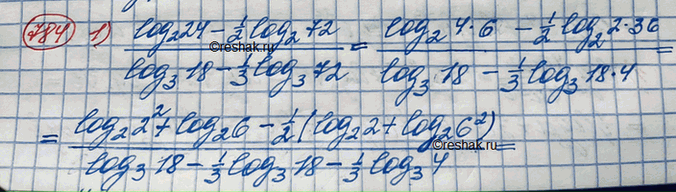 784 1) (log₂24 - ½log₂72)/(log₃18 - ⅓log₃72) = (log₂4·6 - ½log₂2·36)/(log₃18 - ⅓log₃18·4) =
= (log₂2² + log₂6 - ½(log₂2 + log₂6²))/(log₃18 - ⅓log₃18 - ⅓log₃4) =
©reshak.ru
©reshak.ru